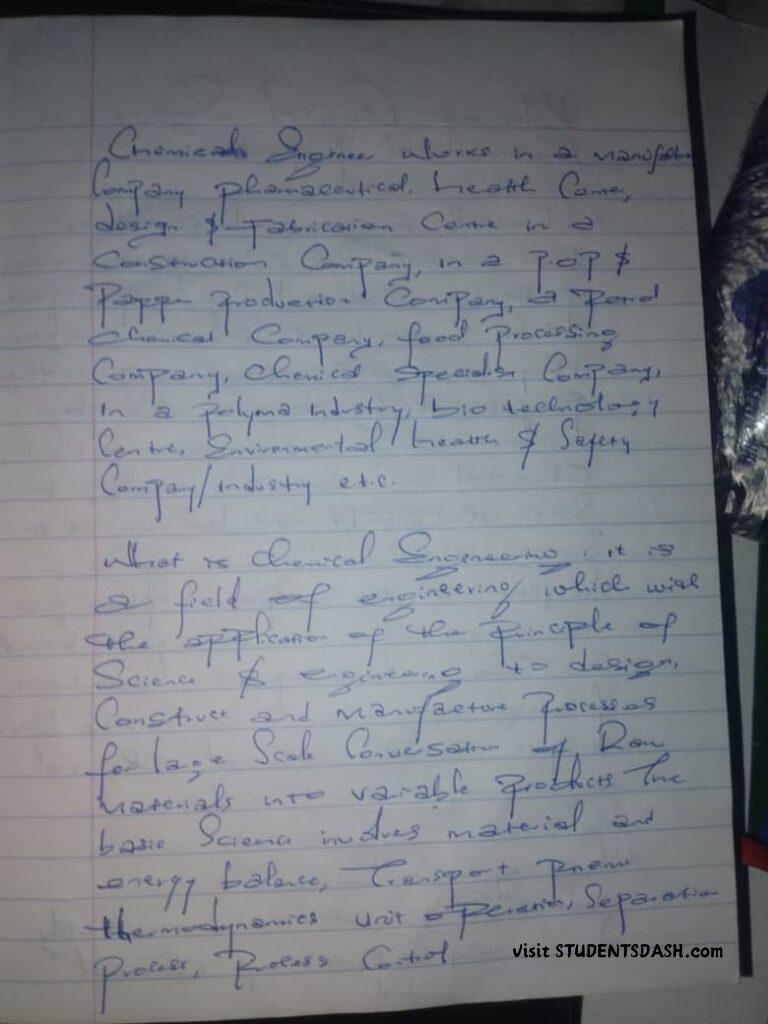 Chemical Engineer works in a manufactu
Company pharmaceutical, health Centre,
design & Fabrication Centre in a
Construction Company, in a P.O.P &
Production Company, a Petrol
Chemical Company, food Processing
Company, Chemical Specialist Company,
in a Polyma industry, bio technology
Centre, Environmental health & Safety
Company/industry e.t.c.
What is Chemical Engineering: it is
a field of engineering which with
the application of the principle of
Science & engineering to design,
Construct and manufacture Processes
for large Scale Conversation of Raw
materials into variable products The
basic Science involves material and
energy balance, Transport
thermodynamics unit operation, Separation
Process, Process Control.
visit STUDENTSDASH.com